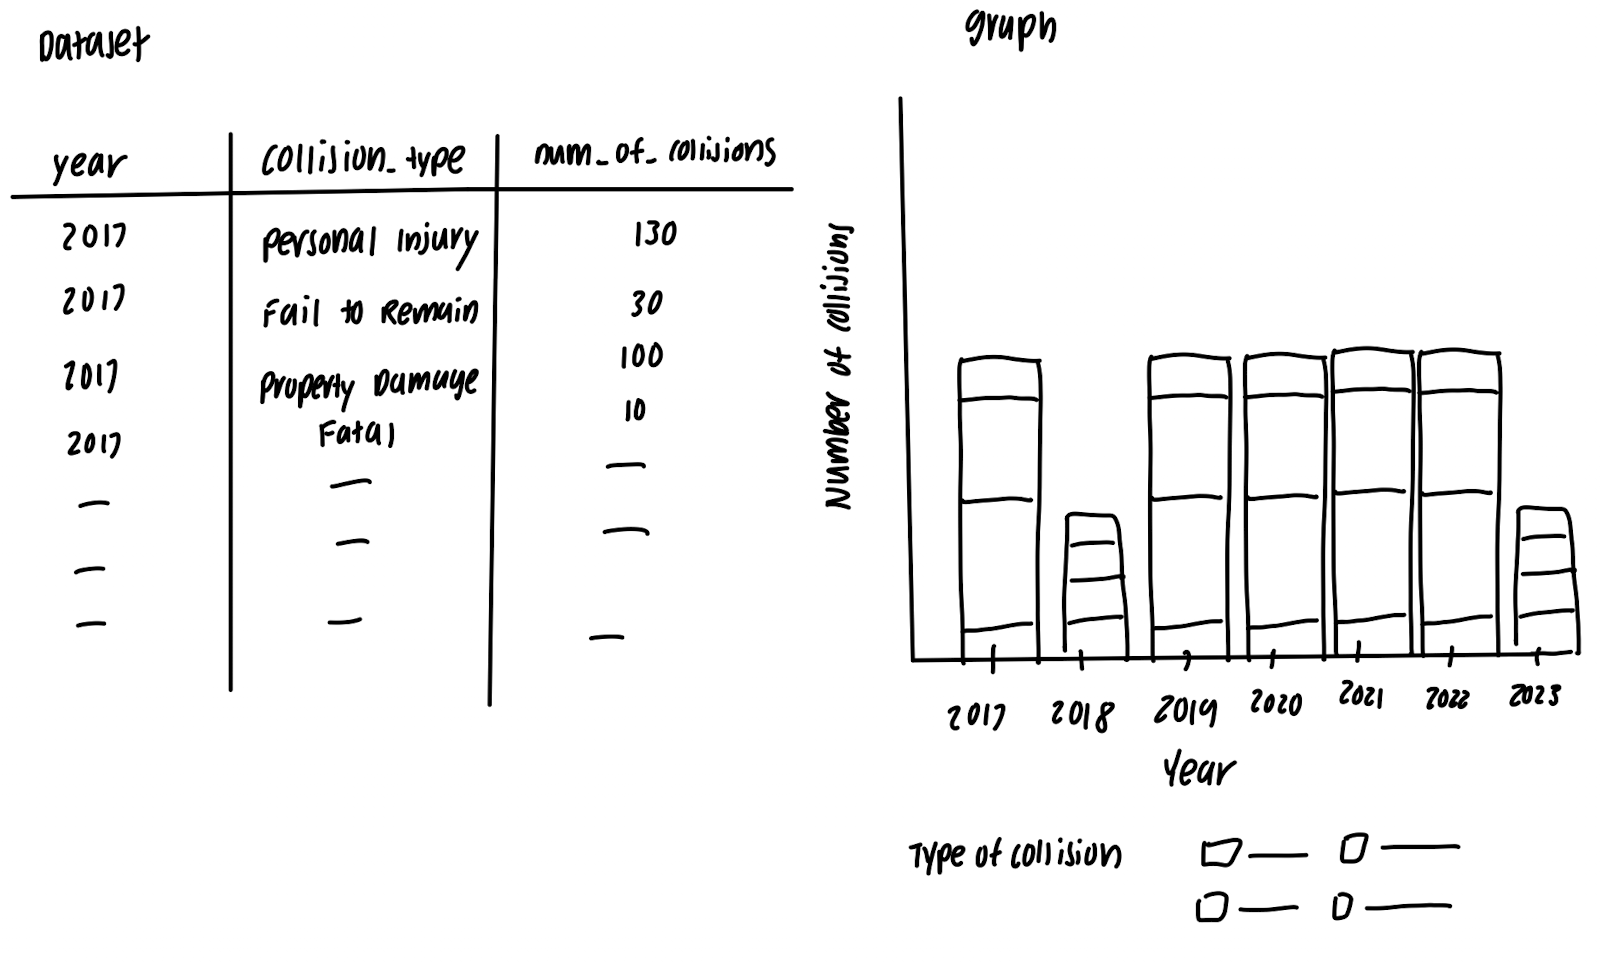 Dataset
year collision_type num_of_collisions
2017 Personal Injury 130
2017 Fail to Remain 30
2017 Property Damage 100
2017 Fatal 10
Graph
Number of collisions
2017 2018 2019 2020 2021 2022 2023
Year
Type of collision